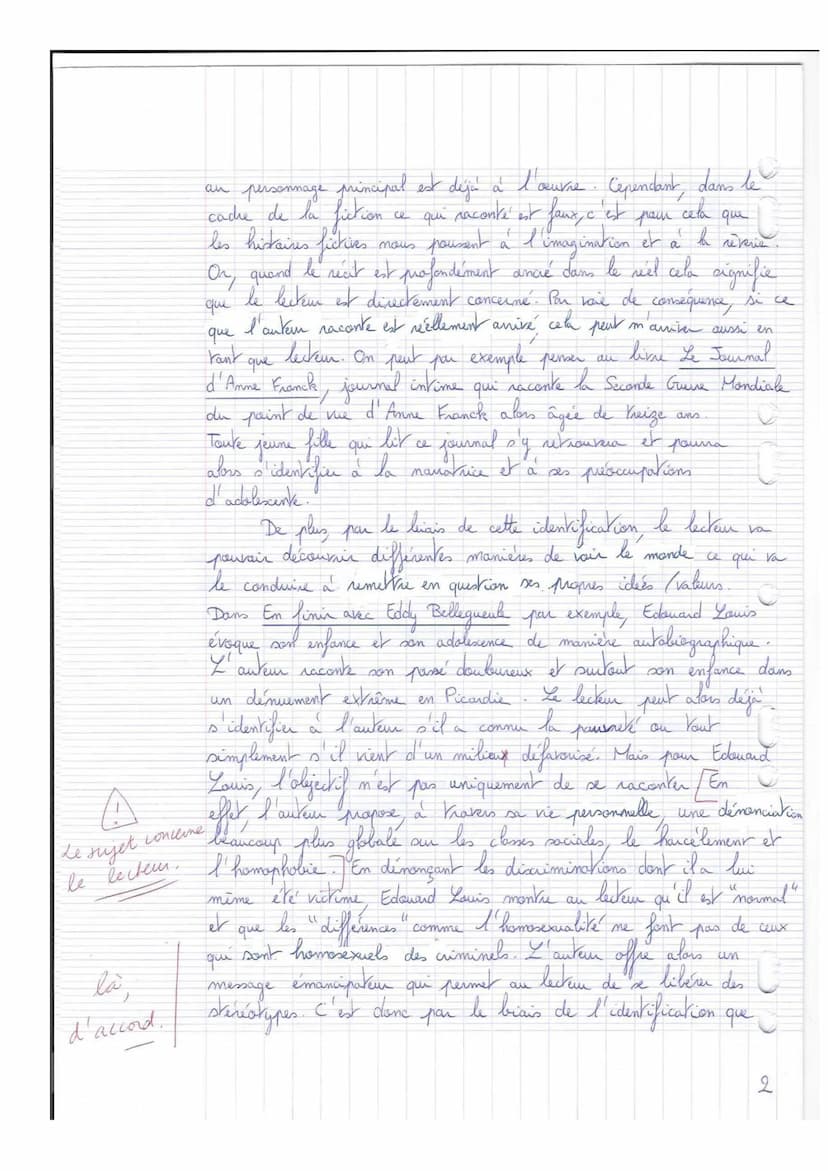 au personnage principal est déjà à l'œuvre. Cependant, dans le
cadre de la fiction ce qui raconté est faux, c'est pour cela que
les histoires fictives nous poussent à l'imagination et à la rêverie.
Or, quand le récit est profondément ancré dans le réel cela signifie
que le lecteur est directement concerné. Par voie de conséquence, si ce
que l'auteur raconte est réellement arrivé, cela peut m'arriver aussi en
tant que lecteur. On peut par exemple penser au livre Le Journal
d'Anne Franck, journal intime qui raconte la Seconde Guerre Mondiale
du point de vue d'Anne Franck alors âgée de treize ans.
Toute jeune fille qui lit ce journal s'y retrouvera et pourra
alors s'identifier à la narratrice et à ses préoccupations
d'adolescente.
De plus, par le biais de cette identification, le lecteur va
pouvoir découvrir différentes manières de voir le monde ce qui va
le conduire à remettre en question ses propres idées / valeurs.
Dans En finir avec Eddy Bellegueule par exemple, Edouard Louis
évoque son enfance et son adolescence de manière autobiographique.
L'auteur raconte son passé douloureux et surtout son enfance dans
un dénuement extrême en Picardie. Le lecteur peut alors déjà
s'identifier à l'auteur s'il a connu la pauvreté ou tout
simplement s'il vient d'un milieux défavorisé. Mais pour Edouard
Louis, l'objectif n'est pas uniquement de se raconter. [En
effet, l'auteur propose, à travers sa vie personnelle, une dénonciation
beaucoup plus globale sur les classes sociales, le harcèlement et
l'homophobie.] En dénonçant les discriminations dont il a lui
même été victime, Edouard Louis montre au lecteur qu'il est "normal"
et que les "différences" comme l'homosexualité ne font pas de ceux
qui sont homosexuels des criminels. L'auteur offre alors un
message émancipateur qui permet au lecteur de se libérer des
stéréotypes. C'est donc par le biais de l'identification que
!
Le sujet concerne
le lecteur.
là,
d'accord.
2